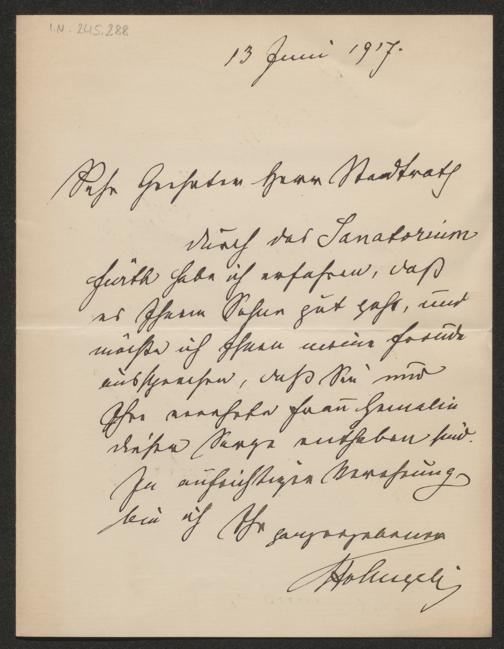 I.N. 245.288
13 Juni 1917.
Sehr Geehrter Herr Stadtrath
durch das Sanatorium
Fürth habe ich erfahren, daß
es Ihrem Sohne gut geht, und
möchte ich Ihnen meine Freude
aussprechen, daß Sie und
Ihre verehrte Frau Gemalin
dieser Sorge enthoben sind.
In aufrichtiger Verehrung
bin ich Ihr ganz ergebener